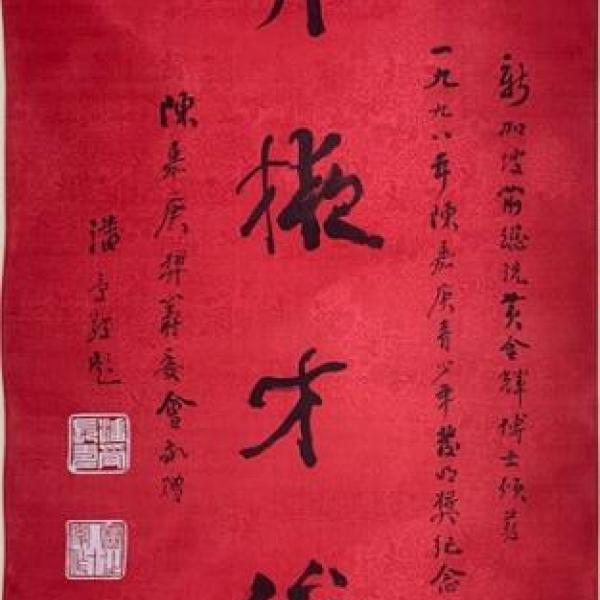 新加坡前總統黃金輝博士頒發
一九九八年陳嘉庚青少年發明獎紀念
掖才
陳嘉庚獎籌委會敬贈
潘受敬題